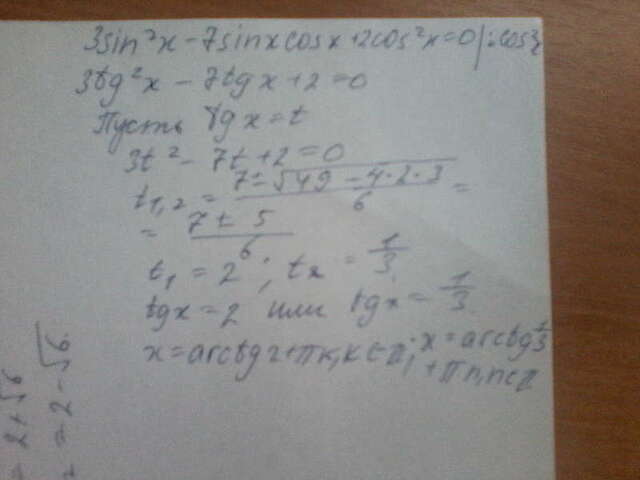 3sin²x - 7sinxcosx + 2cos²x = 0 | : cos²x
3tg²x - 7tgx + 2 = 0
Пусть tgx = t
3t² - 7t + 2 = 0
t₁,₂ = (7 ± √(49 - 4·2·3))/6 =
= (7 ± 5)/6
t₁ = 2 ; t₂ = 1/3
tgx = 2 или tgx = 1/3
x = arctg2 + πk, k ∈ π; x = arctg 1/3
+ πn, n ∈ π
= 2 - √6